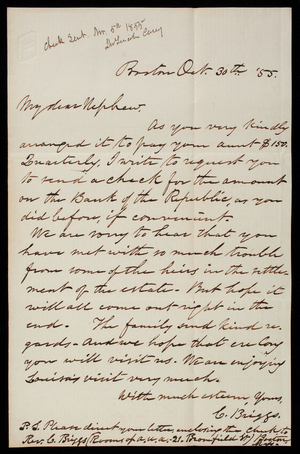 check sent Nov. 5th 1855
Boston Oct. 30th '55.
My dear Nephew.
As you very kindly
arranged it to pay your aunt $150.
Quarterly, I write to request you
to send a check for the amount
on the Bank of the Republic, as you
did before, if convenient.
We are sorry to hear that you
have met with so much trouble
from some of the heirs in the settle-
ment of the estate - But hope it
will all come out right in the
end. The family send kind re-
gards - And we hope that ere long
you will visit us. We are enjoying
Louisa's visit very much.
With much esteem, Yours,
C. Briggs.
P.S. Please direct your letter, enclosing the check to
Rev. C. Briggs (Rooms of A. U. A. - 21. Bromfield St) Boston